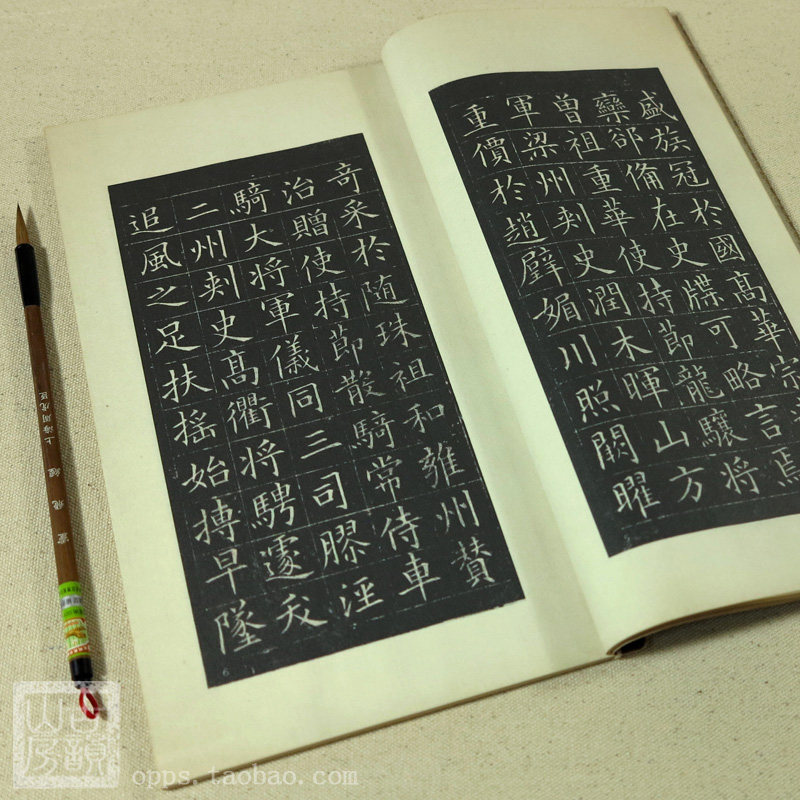 盛族冠於國高華宗
欒郤備在史牒可略言焉
曾祖重華使持節龍驤將
軍梁州刾史潤木暉山方
重價於趙璧媚川照闕曜
奇采於随珠祖和雍州賛
治贈使持節散騎常侍車
騎大將軍儀同三司膠涇
二州刾史高衢將騁遽夭
追風之足扶摇始搏早墜
上海周虎臣
古韻山房
opps.taobao.com